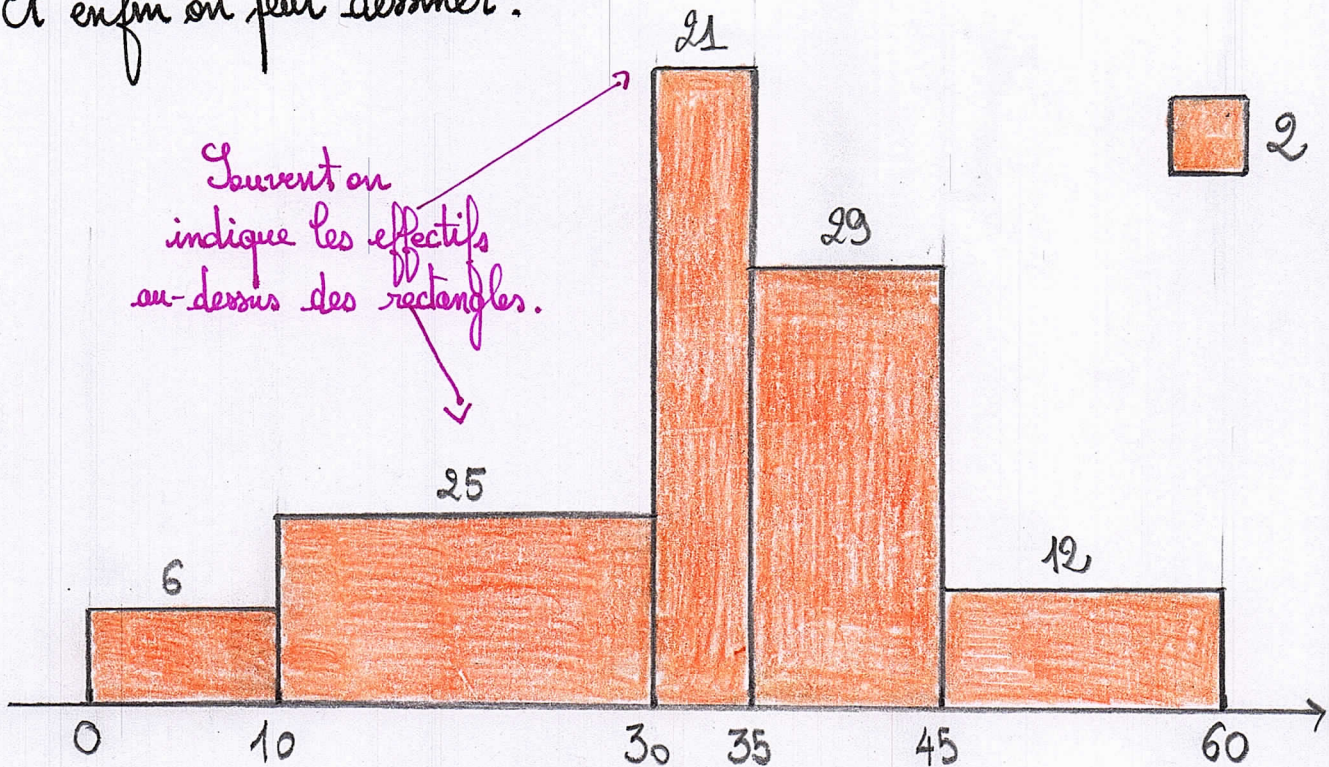 Et enfin on peut dessiner.
21
2
Souvent on
indique les effectifs
au-dessus des rectangles.
29
25
12
6
0 10 30 35 45 60